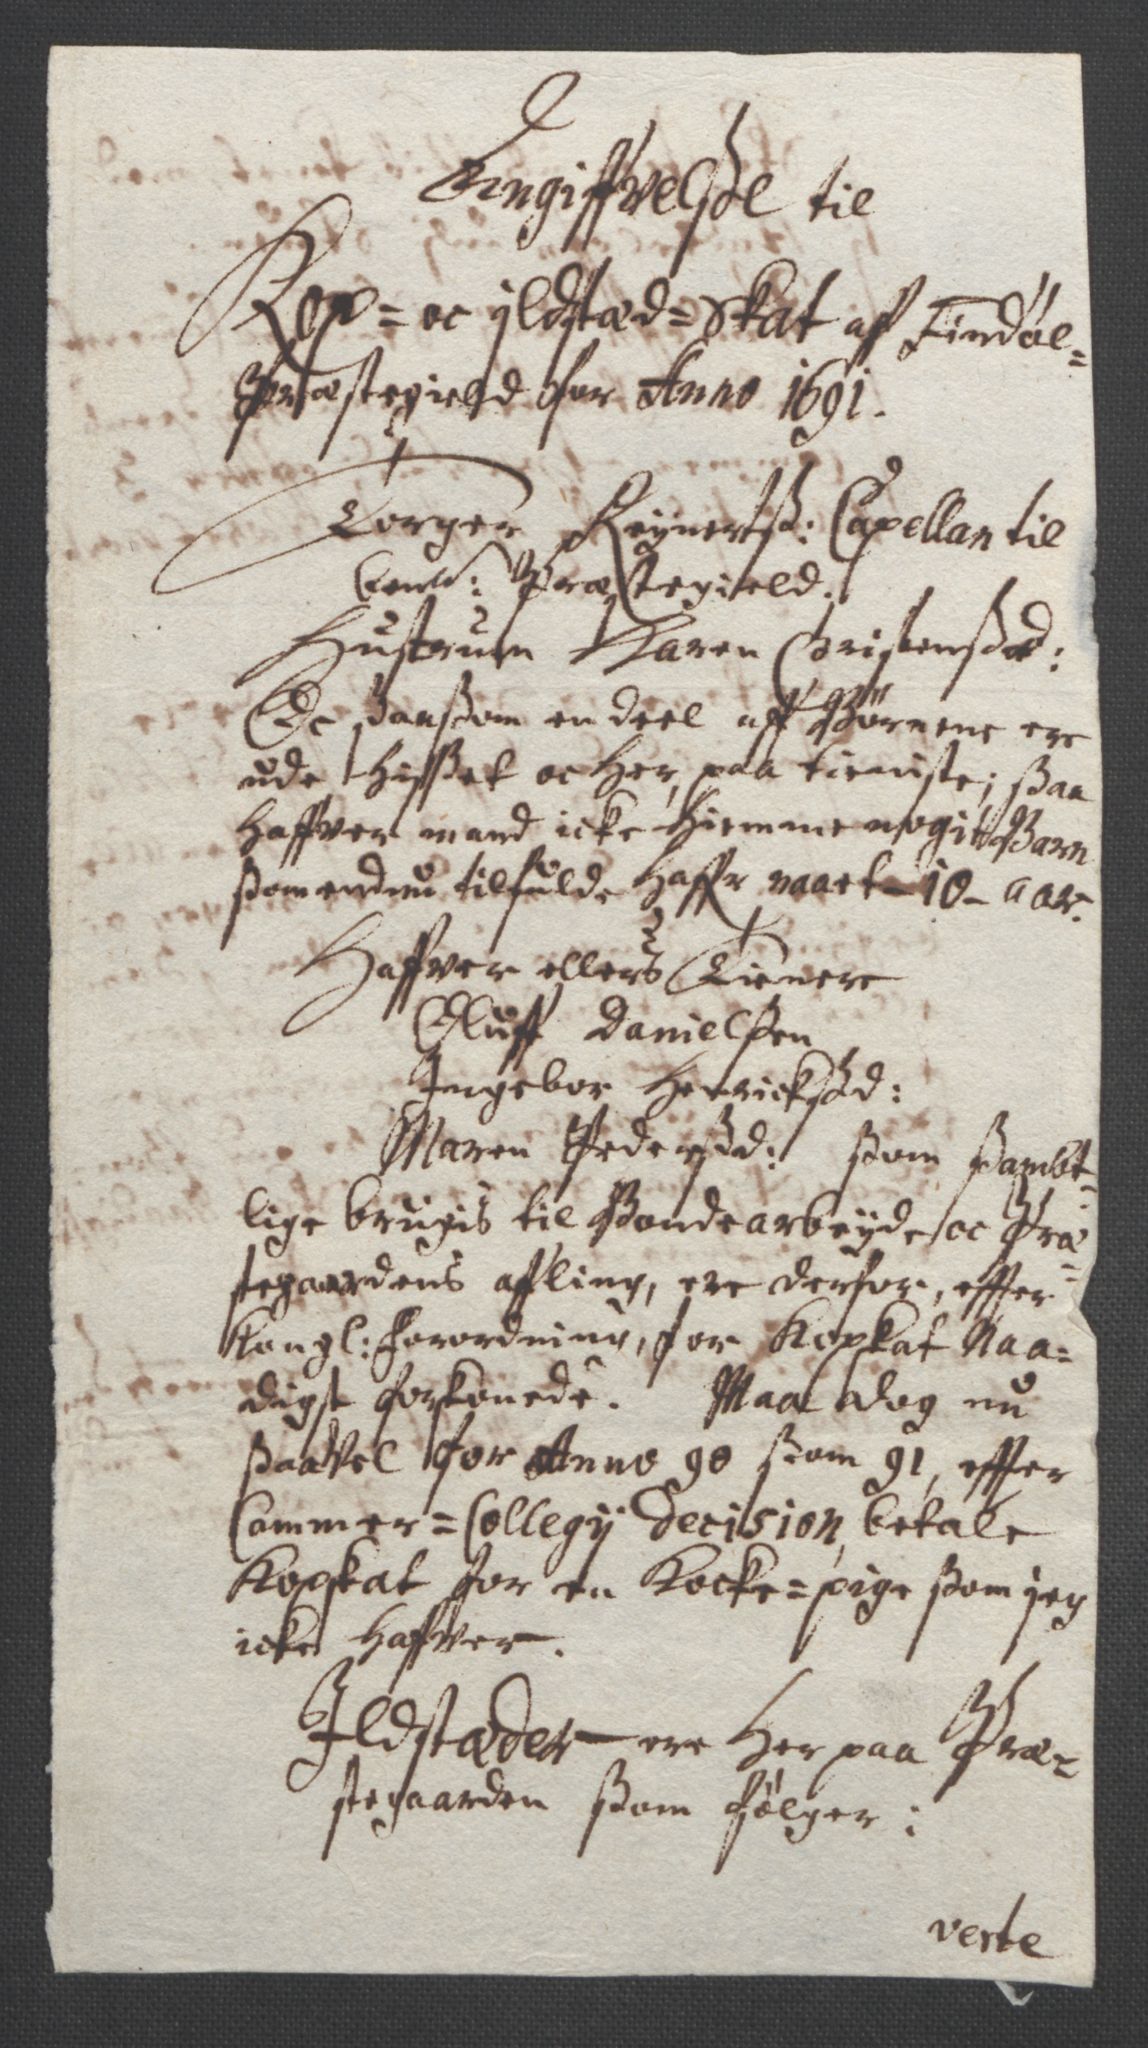 Angiffvelße til
Kop= oc yldstæd=Skat aff Tindøl=
Præstegield for Anno 1691.
Torger Reijnertß: Capellan til
bem: Præstegield.
Hustruen Karen Christensd:
Oc saasom en deel aff Børnene ere
ude hisßet oc her paa tieniste; ßaa
haffver mand icke hiemme nogit Barn
ßom endnu tilfulde haffr naaet - 10 - aar.
Haffver ellers Tienere
Oluff Danielßen
Ingebor Henricksd:
Maren Pedersd: ßom ßambt=
lige brugis til Bondearbeyde oc Præ=
stegaardens affling, ere derfor, effter
Kongl: Forordning, for Kopskat Naa=
digst forskonede. Maa dog nu
ßaavel for Anno 90 ßom 91, effter
Cammer=Collegij Decision, betale
Kopskat for en Kocke=pige ßom jeg
icke haffver.
Ildstæder ere her paa Præ=
stegaarden ßom følger:
verte